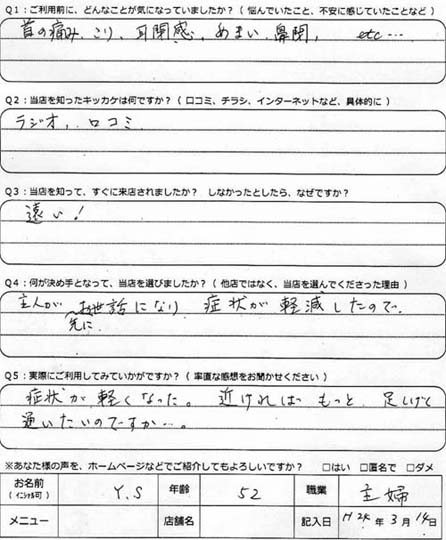 Q1：ご利用前に、どんなことが気になっていましたか？（ 悩んでいたこと、不安に感じていたことなど ）
首の痛み、こり、耳閉感、めまい、鼻閉、 etc…
Q2：当店を知ったキッカケは何ですか？（ 口コミ、チラシ、インターネットなど、具体的に ）
ラジオ、口コミ
Q3：当店を知って、すぐに来店されましたか？ しなかったとしたら、なぜですか？
遠い！
Q4：何が決め手となって、当店を選びましたか？（ 他店ではなく、当店を選んでくださった理由 ）
主人が お世話になり 症状が軽減したので。
先に
Q5：実際にご利用してみていかがですか？（ 率直な感想をお聞かせください ）
症状が軽くなった。 近ければ もっと 足しげく
通いたいのですが…。
※あなた様の声を、ホームページなどでご紹介してもよろしいですか？ □はい □匿名で □ダメ
お名前 Y.S 年齢 52 職業 主婦
（イニシャル可）
メニュー 店舗名 記入日 H24年 3月 14日